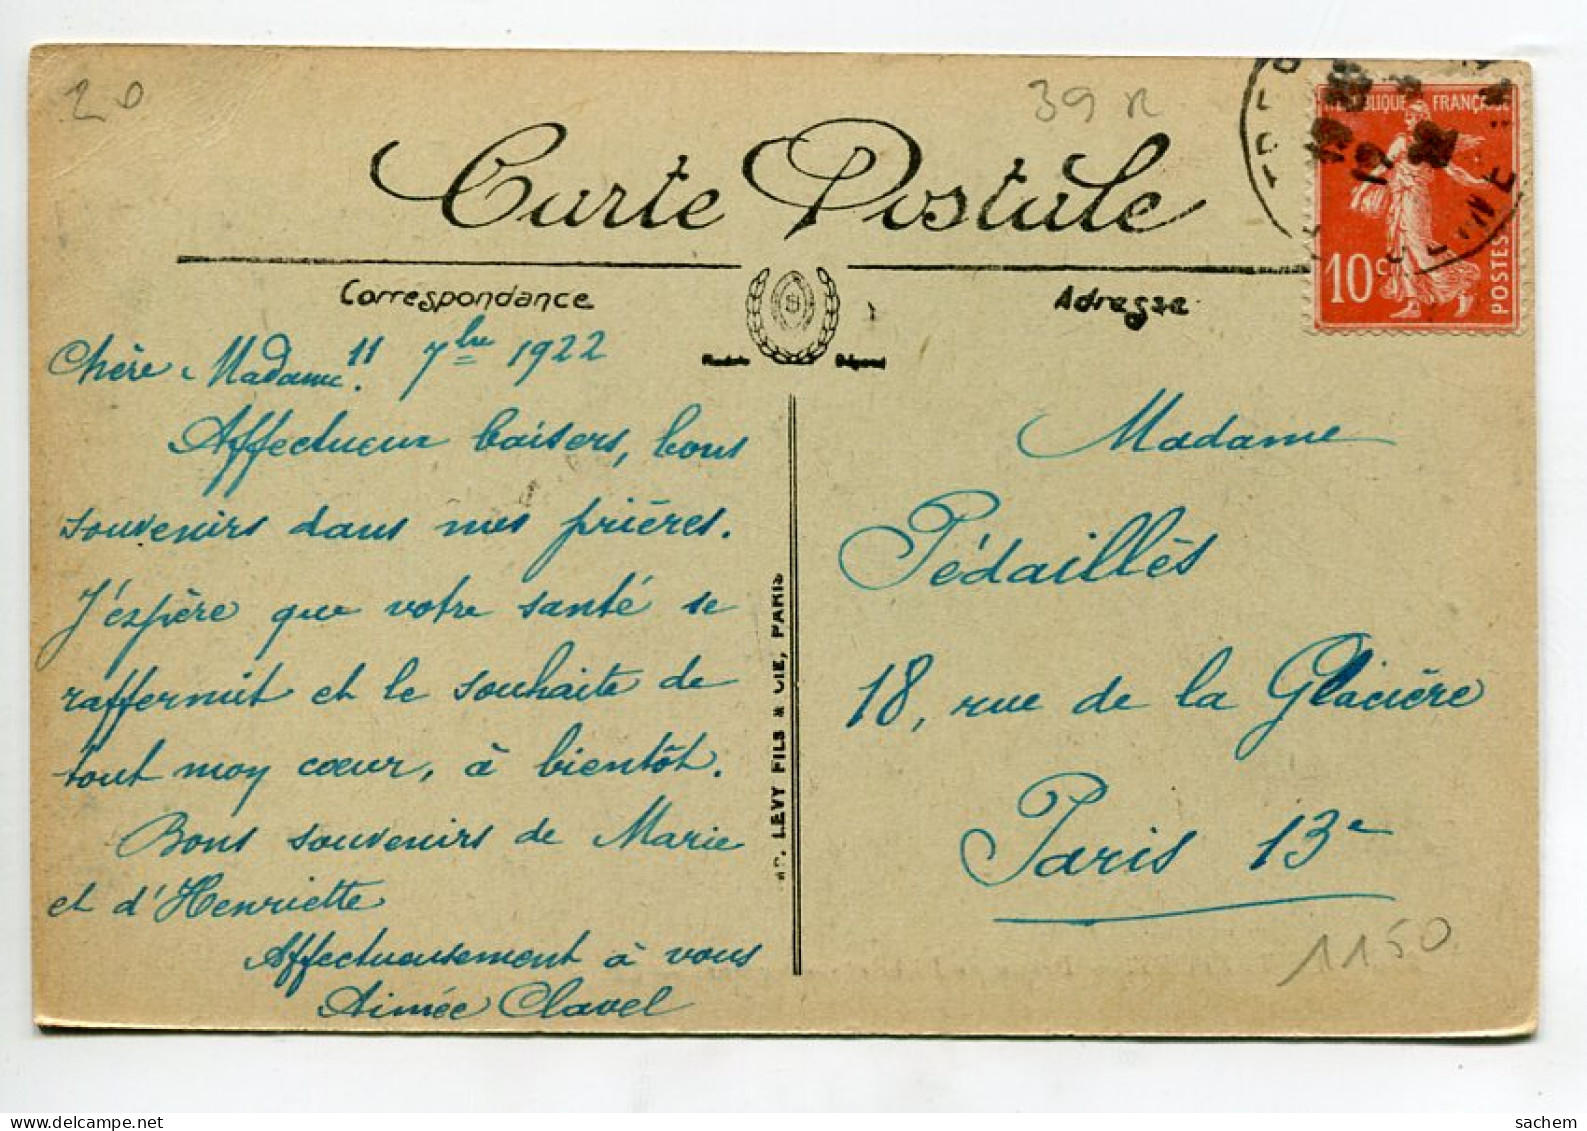 20
39
Carte Postale
RÉPUBLIQUE FRANÇAISE
10 c
POSTES
Correspondance
Adresse
11 7bre 1922
Chère Madame.
Affectueux baisers, bons
souvenirs dans mes prières.
J'espère que votre santé se
raffermit et le souhaite de
tout moy cœur, à bientôt.
Bons souvenirs de Marie
et d'Henriette
Affectueusement à vous
Aimée Clavel
LEVY FILS & CIE, PARIS
Madame
Pédaillès
18, rue de la Glacière
Paris 13e
1150
sachem
www.delcampe.net